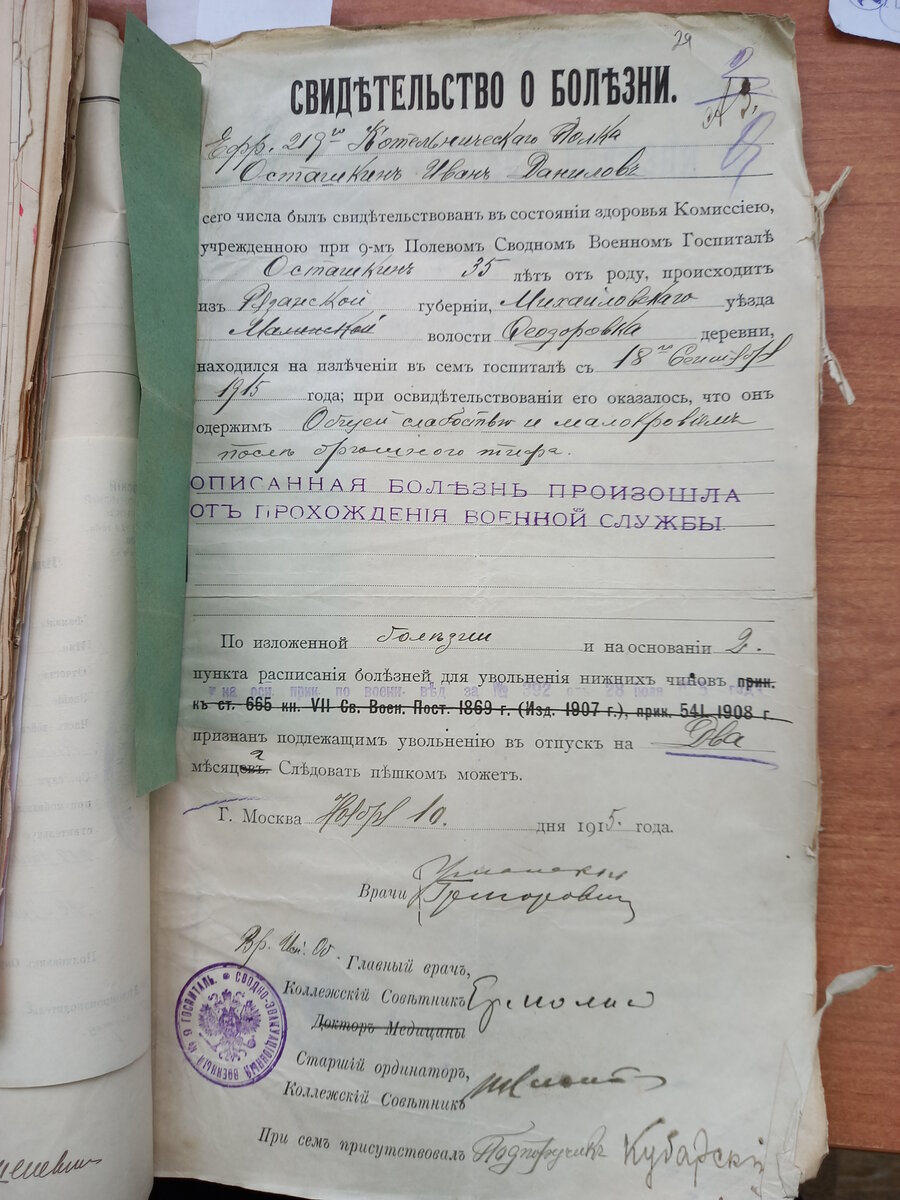 29
СВИДѢТЕЛЬСТВО О БОЛѢЗНИ.
Ефр. 219го Котельническаго Полка
Осташкинъ Иванъ Даниловъ
сего числа былъ свидѣтельствованъ въ состояніи здоровья Комиссіею,
учрежденною при 9-мъ Полевомъ Сводномъ Военномъ Госпиталѣ
Осташкинъ 35 лѣтъ отъ роду, происходитъ
изъ Рязанской губерніи, Михайловскаго уѣзда
волости Ѳеодоровка деревни,
находился на излѣченіи въ семъ госпиталѣ съ 18го Сентября
1915 года; при освидѣтельствованіи его оказалось, что онъ
одержимъ Общей слабостью и малокровіемъ
послѣ брюшного тифа.
ОПИСАННАЯ БОЛѢЗНЬ ПРОИЗОШЛА
ОТЪ ПРОХОЖДЕНІЯ ВОЕННОЙ СЛУЖБЫ.
По изложенной болѣзни и на основаніи 2.
пункта расписанія болѣзней для увольненія нижнихъ чиновъ прик.
и на осн. прик. по военн. вѣд. за № 392 отъ 28 іюля
къ ст. 665 кн. VII Св. Воен. Пост. 1869 г. (Изд. 1907 г.), прик. 541 1908 г.
признанъ подлежащимъ увольненію въ отпускъ на Два
мѣсяцовъ. а Слѣдовать пѣшкомъ можетъ.
Г. Москва Ноября 10. дня 1915. года.
Врачи Григоровичъ
Вр. Исп. Об. Главный врачъ,
Коллежскій Совѣтникъ
Докторъ Медицины
Старшій ординаторъ,
Коллежскій Совѣтникъ
При семъ присутствовалъ Подпоручикъ Кубарскій
СВОДНО-ЭВАКУАЦІОННЫЙ ВОЕННЫЙ № 9 ГОСПИТАЛЬ